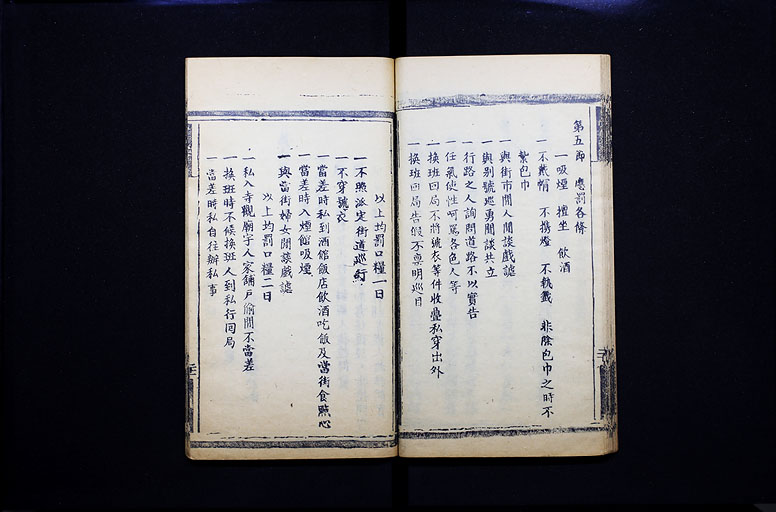 第五節 應罰各條
一吸煙 擅坐 飲酒
一不戴帽 不携燈 不執籤 非除包巾之時不
紮包巾
一與街市閒人閒談戲謔
一與別號巡勇閒談共立
一行路之人詢問道路不以實告
一任氣使性呵罵各色人等
一換班回局不將號衣等件收疊私穿出外
一換班回局告假不稟明巡目
以上均罰口糧一日
一不照派定街道巡行
一不穿號衣
一當差時私到酒館飯店飲酒吃飯及當街食點心
一當差時入煙館吸煙
一與當街婦女閒談戲謔
以上均罰口糧二日
一私入寺觀廟宇人家鋪戶偷閒不當差
一換班時不候換班人到私行回局
一當差時私自往辦私事